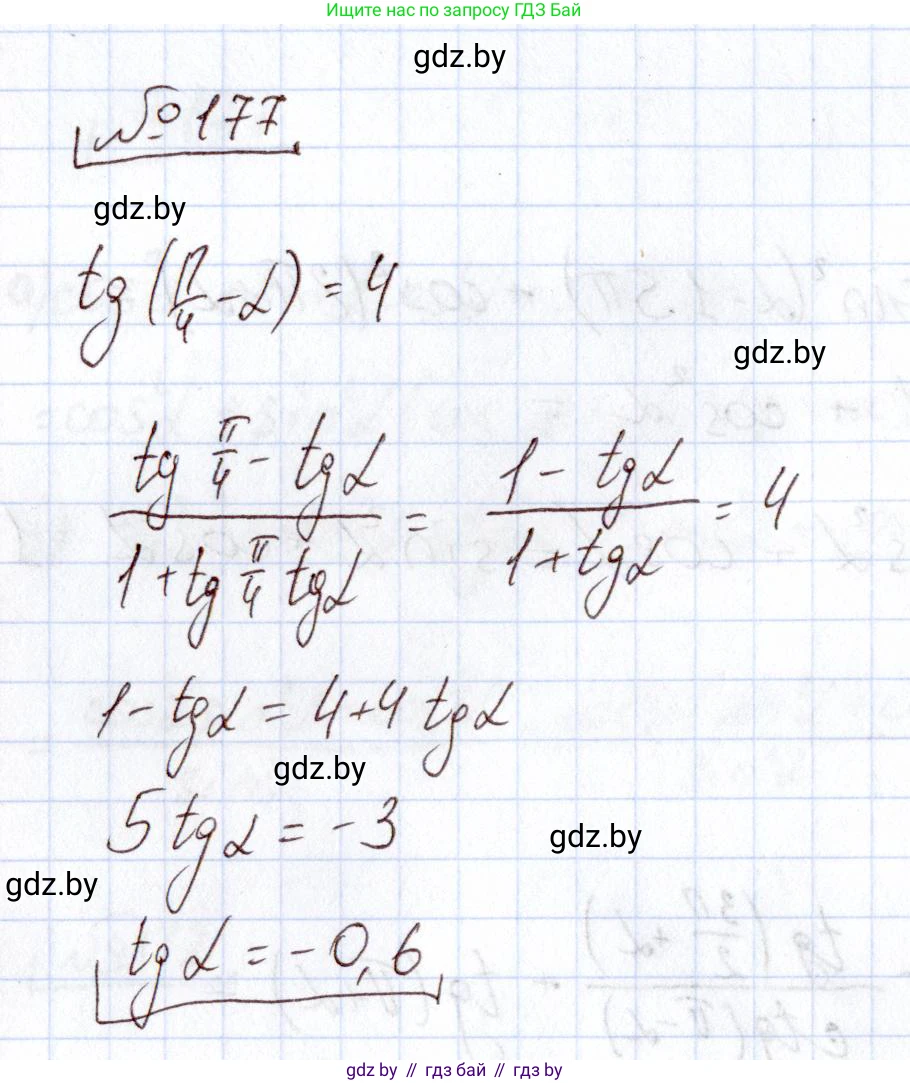 Ищите нас по запросу ГДЗ Бай
gdz.by
№ 177
gdz.by
tg(π/4 - α) = 4
gdz.by
(tg π/4 - tg α)/(1 + tg π/4 tg α) = (1 - tg α)/(1 + tg α) = 4
1 - tg α = 4 + 4 tg α
gdz.by
5 tg α = -3
gdz.by
gdz.by
tg α = -0,6
gdz.by // гдз бай // гдз by